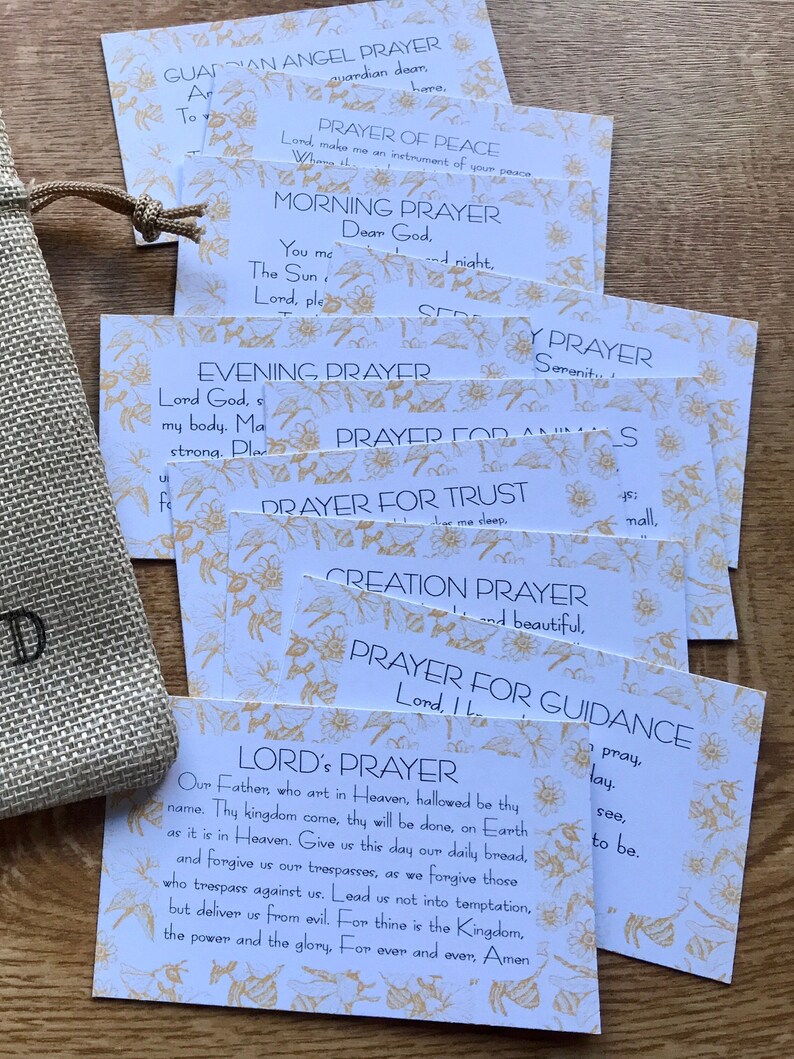 GUARDIAN ANGEL PRAYER
guardian dear,
here,
To
PRAYER OF PEACE
Lord, make me an instrument of your peace
Where
MORNING PRAYER
Dear God,
You and night,
The Sun
Lord,
PRAYER
Serenity
EVENING PRAYER
Lord God,
my body.
strong.
PRAYER FOR ANIMALS
PRAYER FOR TRUST
me sleep,
CREATION PRAYER
and beautiful,
PRAYER FOR GUIDANCE
Lord, I pray,
see,
to be.
D
LORD's PRAYER
Our Father, who art in Heaven, hallowed be thy
name. Thy kingdom come, thy will be done, on Earth
as it is in Heaven. Give us this day our daily bread,
and forgive us our trespasses, as we forgive those
who trespass against us. Lead us not into temptation,
but deliver us from evil. For thine is the Kingdom,
the power and the glory, For ever and ever, Amen